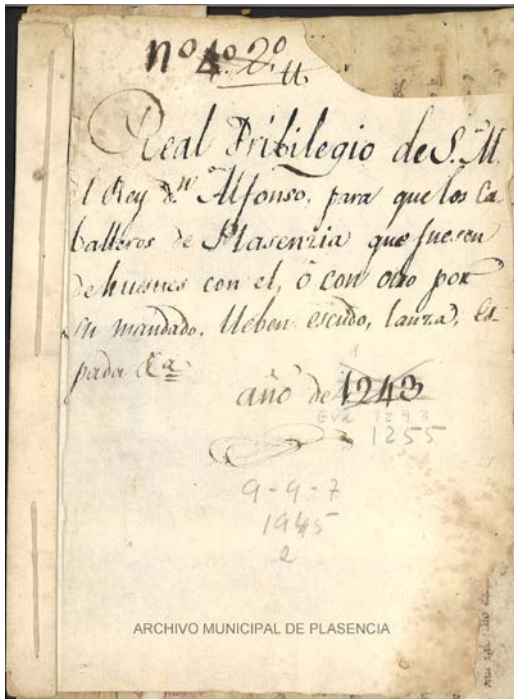 nº 4º 2º
Real Pribilegio de S. M.
el Rey Dn Alfonso, para que los Ca-
balleros de Plasenzia que fuesen
de huestes con el, ó con otro por
su mandado, lleben escudo, lanza, es-
pada &a
año de 1243
Era 1293
1255
9-9-7
1945
2
ARCHIVO MUNICIPAL DE PLASENCIA